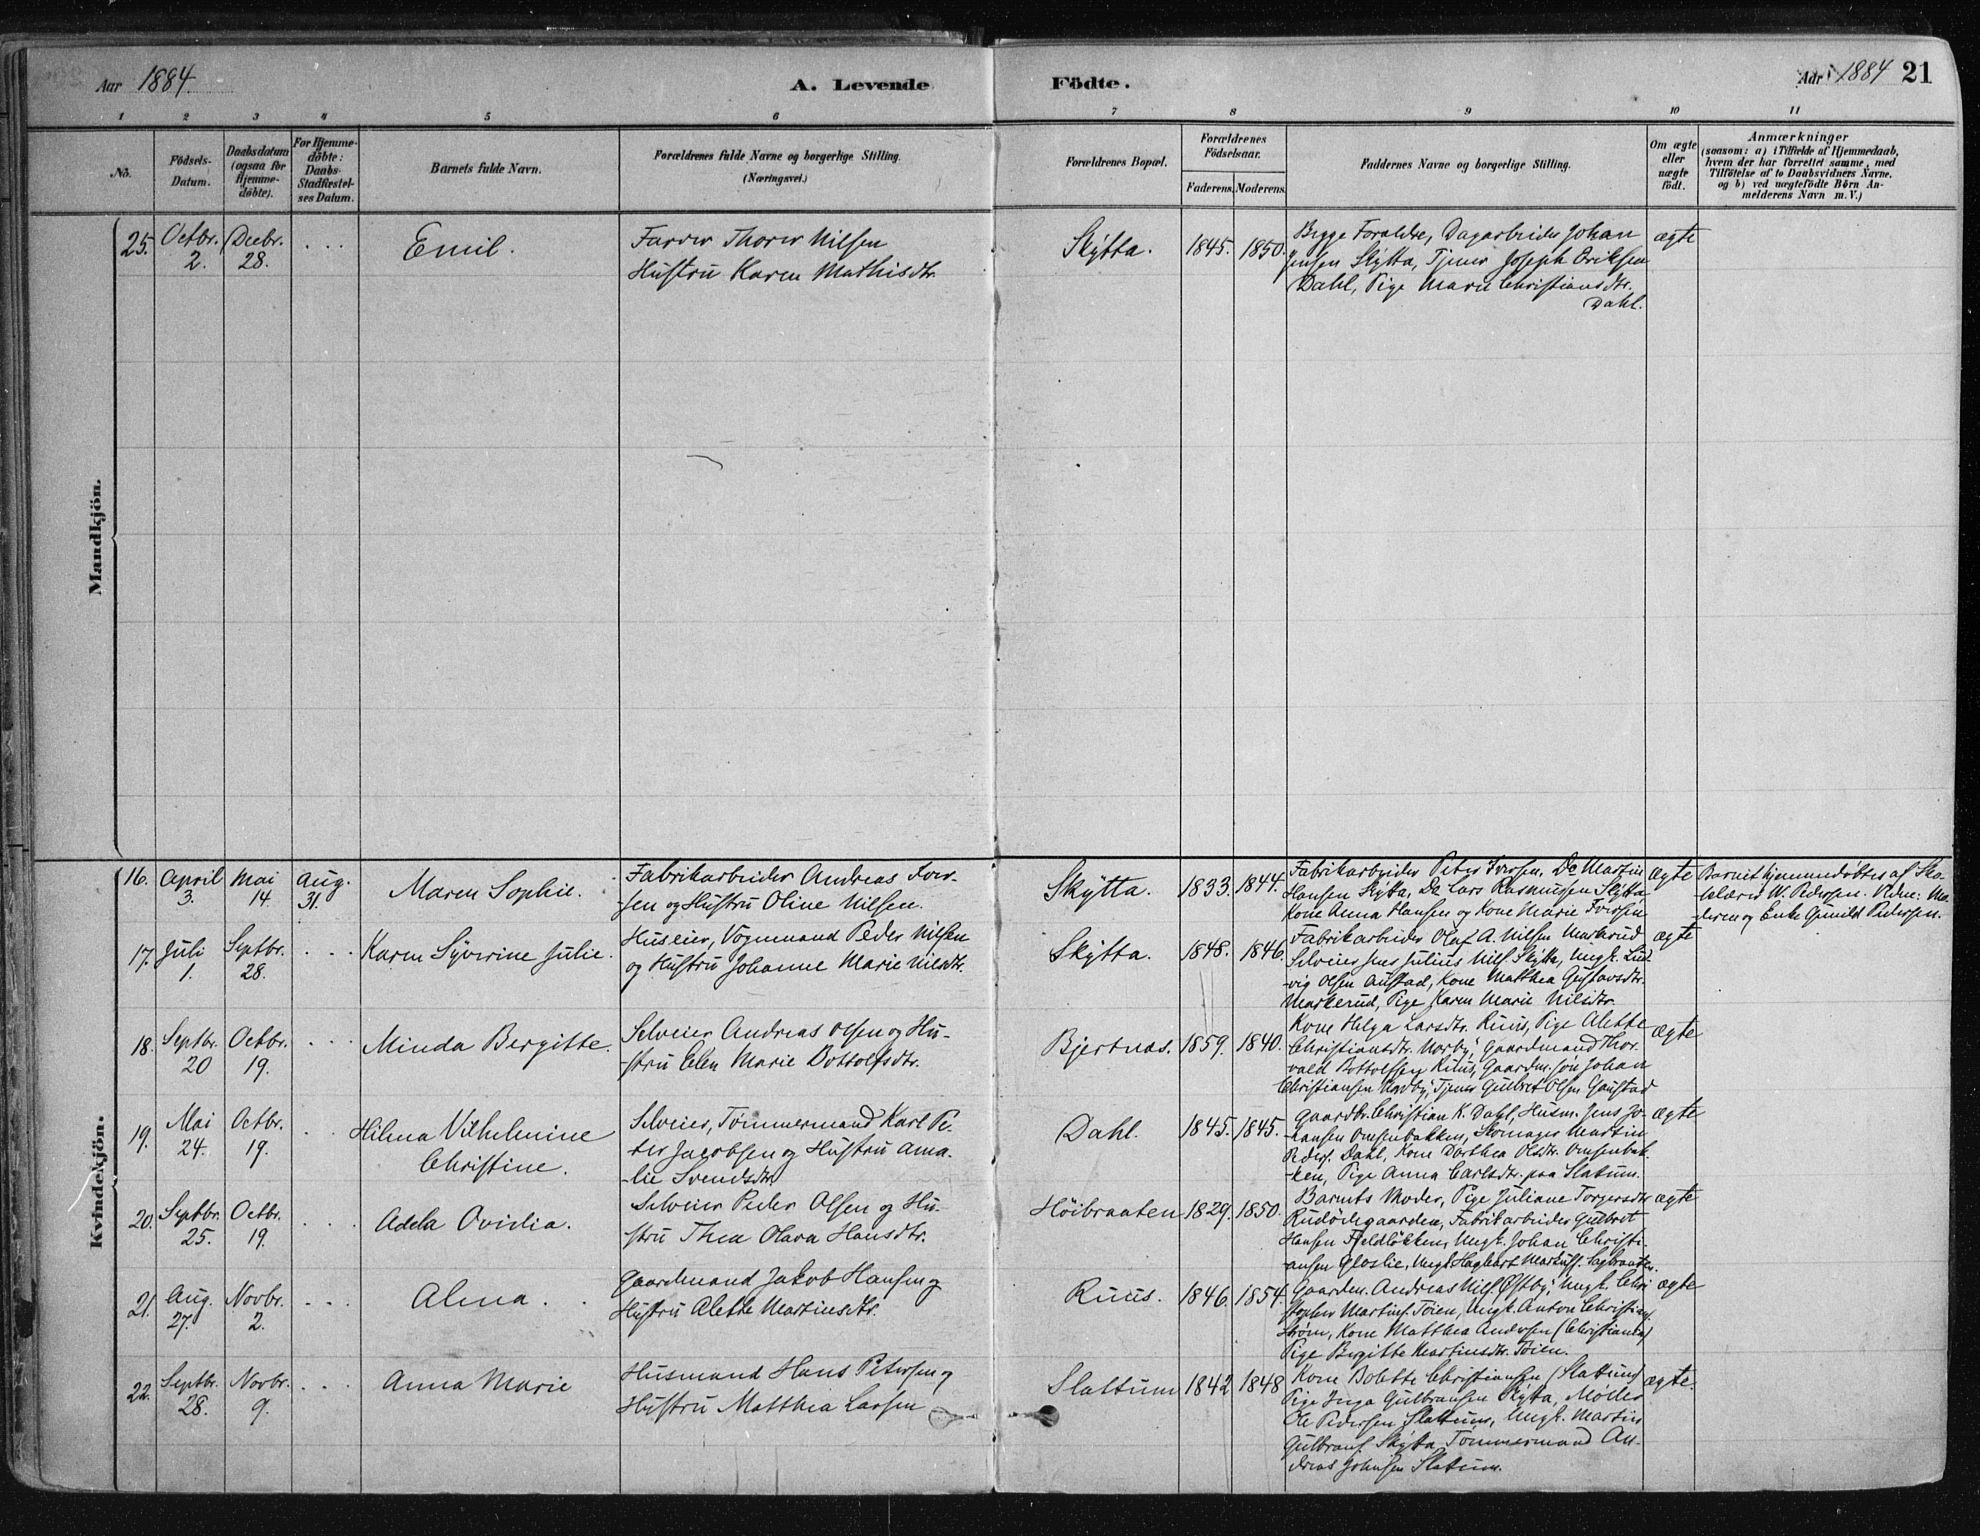 Aar 1884.
A. Levende
Födte.
Aar 1884
21
1 2 3 4 5 6 7 8 9 10 11
No.
Födsels-Datum.
Daabsdatum (ogsaa för Hjemmedöbte).
For Hjemmedöbte: Daabs-Stadfæstelses Datum.
Barnets fulde Navn.
Forældrenes fulde Navne og borgerlige Stilling.
(Næringsvei.)
Forældrenes Bopæl.
Forældrenes Födselsaar.
Faderens. Moderens.
Faddernes Navne og borgerlige Stilling.
Om ægte eller uægte födt.
Anmærkninger
(saasom: a) i Tilfælde af Hjemmedaab,
hvem der har forrettet samme, med
Tilföielse af to Daabsvidners Navne,
og b) ved uægtefödte Börn An-
melderens Navn m. V.)
Mandkjön.
25. Octbr. 2. Decbr. 28. . . . Emil.
Farver Thorer Nilsen
Hustru Karen Mathisdtr.
Skÿtta. 1845. 1850.
Begge Forældre, Dagarbeider Johan
Jensen Skÿtta, Tjener Joseph Eriksen
Dahl, Pige Marie Christiansdtr.
Dahl.
ægte
Kvindekjön.
16. April 3. Mai 14 Aug. 31. Maren Sophie.
Fabrikarbeider Andreas Iver-
sen og Hustru Oline Nilsen.
Skÿtta. 1833. 1844.
Fabrikarbeider Peter Iversen, Do Martin
Hansen Skÿtta, Do Lars Rasmussen Skÿtta,
Kone Anna Hansen og Kone Marie Iversen
ægte
Barnet hjemmedøbtes af Sko-
lelærer W. Pedersen. Vidne: Mo-
deren og Enke Gunild Pedersen.
17. Juli 1. Septbr. 28. . . . Karen Sÿverine Julie.
Huseier, Vognmand Peder Nilsen
og Hustru Johanne Marie Nilsdtr.
Skÿtta. 1848. 1846.
Fabrikarbeider Olaf A. Nilsen Markerud
Selveier Jens Julius Nils. Skÿtta, Ungk. Lud-
vig Olsen Austad, Kone Matthea Gustavsdtr.
Markerud, Pige Karen Marie Nilsdtr.
ægte
18. Septbr. 20 Octbr. 19. . . . Minda Bergitte.
Selveier Andreas Olsen og Hu-
stru Elen Marie Bottolfsdtr.
Bjertnæs. 1859. 1840.
Kone Helga Larsdtr. Ruus, Pige Alette
Christiansdtr. Norbÿ, Gaardmand Thor-
vald Bottolfsen Ruus, Gaardm. søn Johan
Christiansen Norbÿ, Tjener Gulbret Olsen Gaustad
ægte
19. Mai 24. Octbr. 19. . . . Hilma Vilhelmine
Christine.
Selveier, Tømmermand Karl Pe-
ter Jacobsen og Hustru Ama-
lie Svendsdtr.
Dahl. 1845. 1845.
Gaardbr. Christian K. Dahl, Husm. Jens Jo-
hansen Omsenbakken, Skomager Martin
Peders. Dahl, Kone Dorthea Olsdtr. Omsenbak-
ken, Pige Anna Carlsdtr. paa Slatum.
ægte
20. Septbr. 25. Octbr. 19. . . . Adela Ovidia.
Selveier Peder Olsen og Hu-
stru Thea Olava Hansdtr.
Höibraaten 1829. 1850.
Barnets Moder, Pige Juliane Torgersdtr.
Rudödegaarden, Fabrikarbeider Gulbret
Hansen Fjeldløkken, Ungk. Johan Christi-
ansen Gloslie, Ungk. Hagbart Markuss. Sagbraaten.
ægte
21. Aug. 27. Novbr. 2. . . . Alma.
Gaardmand Jakob Hansen og
Hustru Alette Martinsdtr.
Ruus. 1846. 1854.
Gaardm. Andreas Nils. Østbÿ, Ungk. Chri-
stopher Martins. Töien, Ungk. Anton Christians.
Strøm, Kone Matthea Andersen (Christiania)
Pige Bergitte Martinsdtr. Töien.
ægte
22. Septbr. 28. Novbr. 9. . . . Anna Marie
Husmand Hans Petersen og
Hustru Matthea Larsen
Slattum 1842 1848
Kone Bolette Christiansen (Slattum)
Pige Inga Gulbransen Skÿtta, Møller
Ole Pedersen Slattum, Ungk. Martin
Gulbrans. Skÿtta, Tømmermand An-
dreas Johnsen Slatum.
ægte.